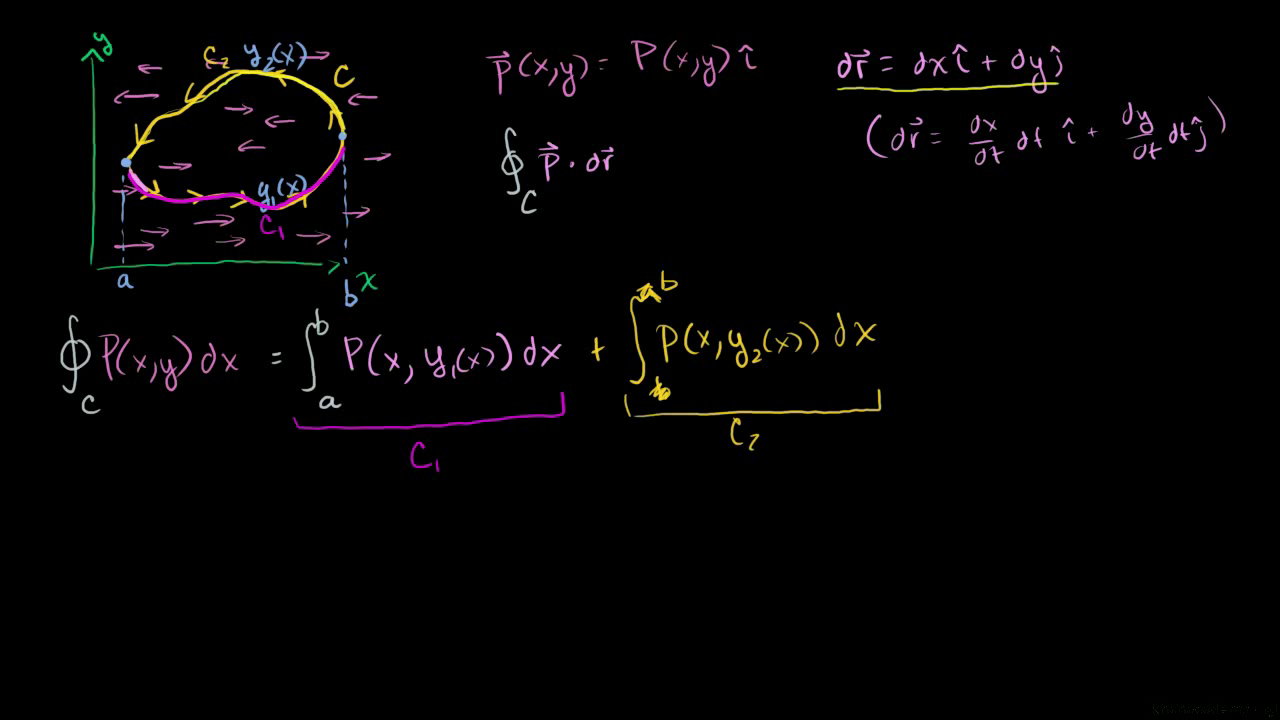 y
C₂ y₂(x) C
y₁(x)
C₁
a b x
p⃗(x,y) = P(x,y) î
dr⃗ = dx î + dy ĵ
(dr⃗ = dx/dt dt î + dy/dt dt ĵ)
∮_C p⃗ · dr⃗
∮_C P(x,y) dx = ∫_a^b P(x, y₁(x)) dx + ∫ b P(x, y₂(x)) dx
C₁ C₂